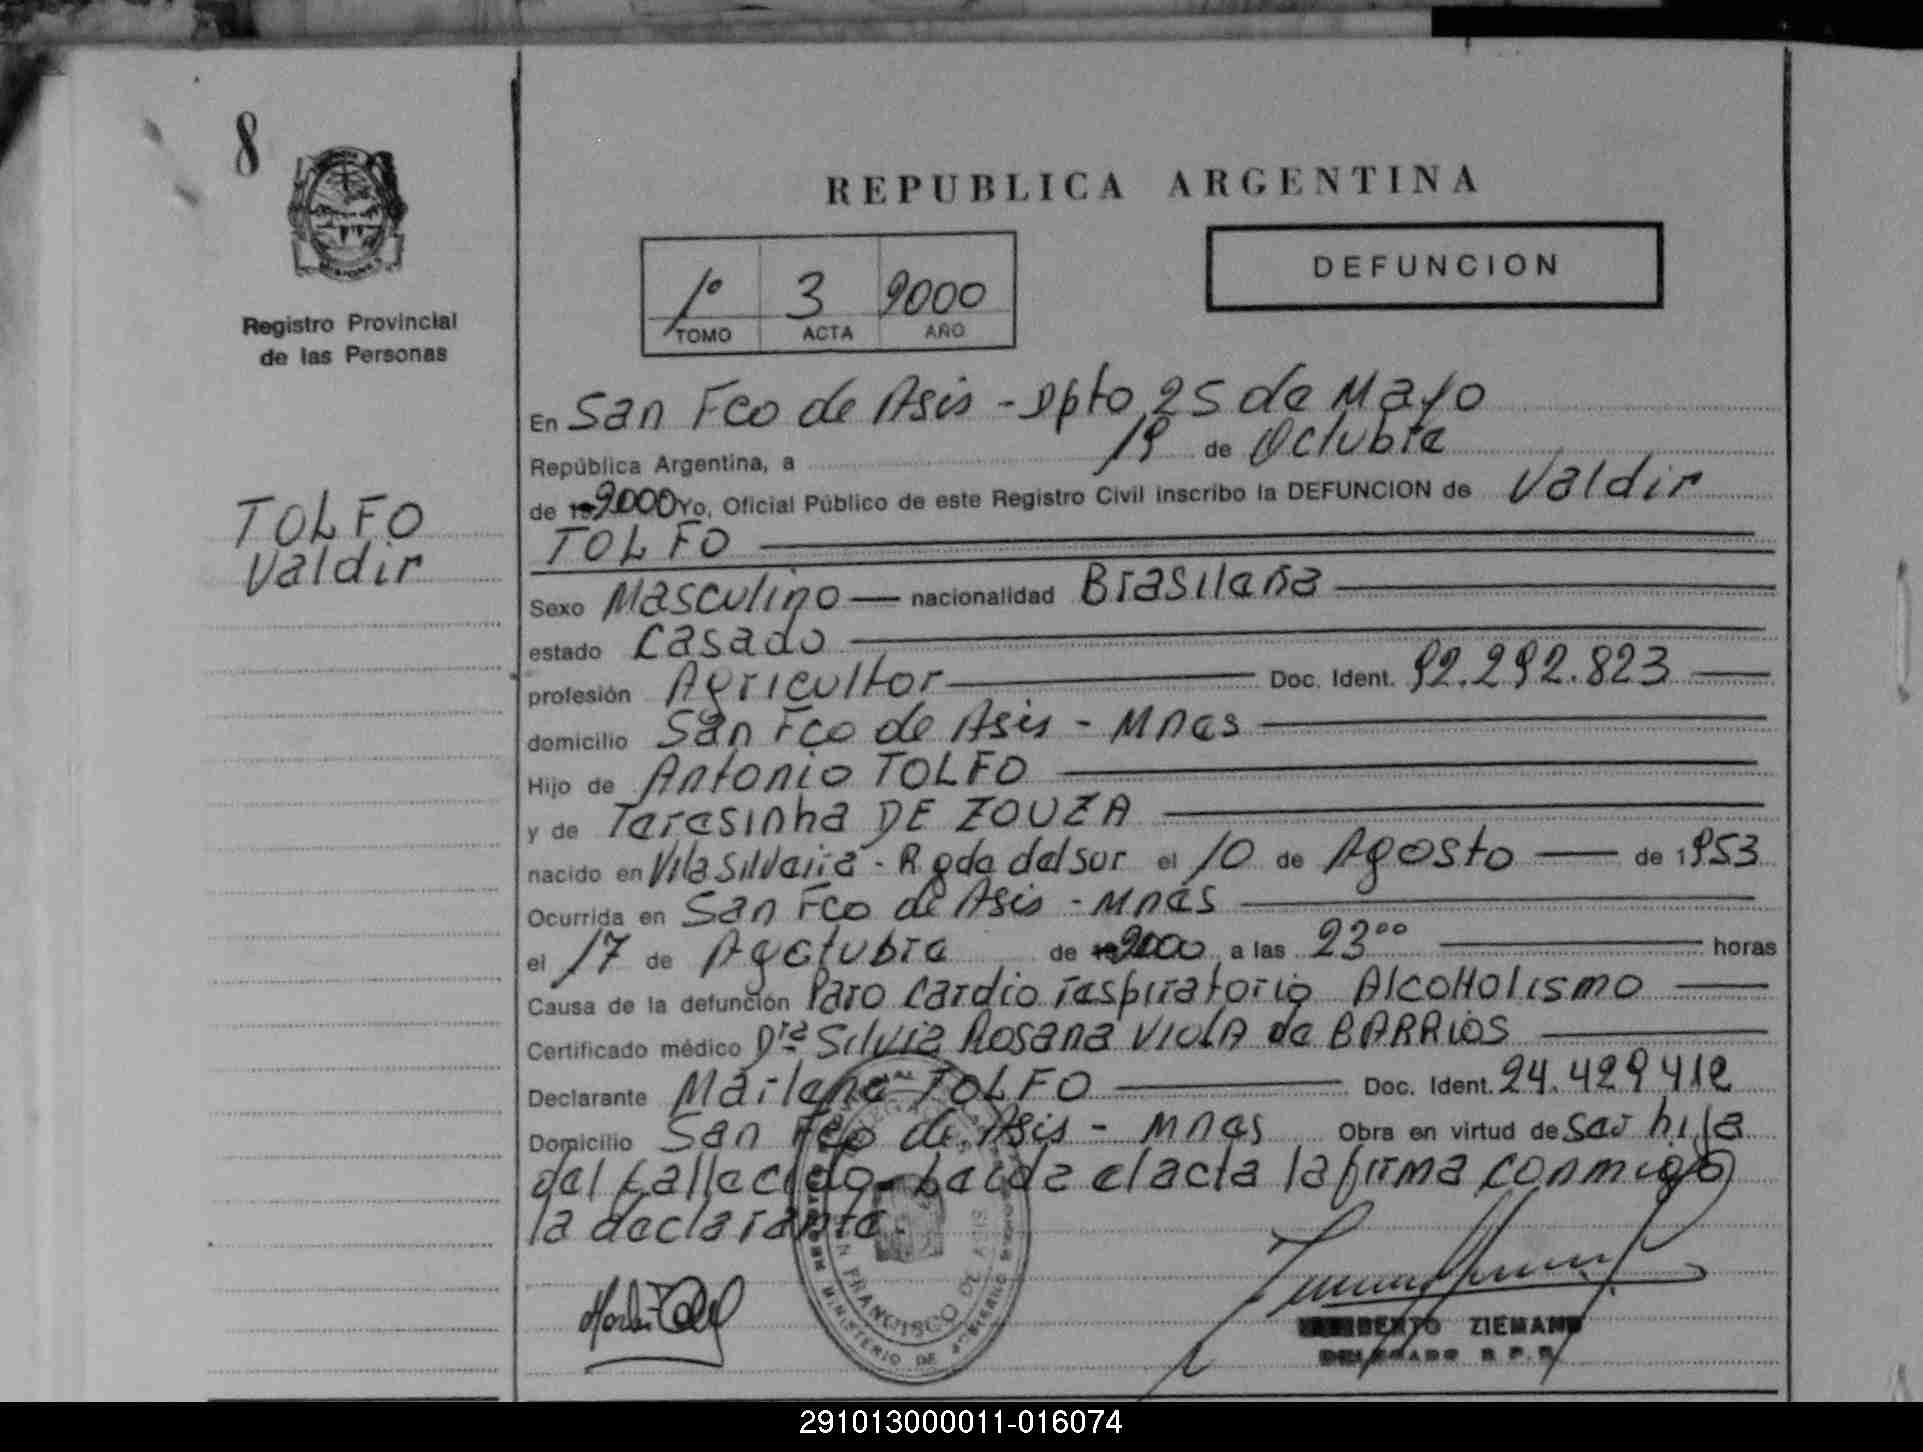 8
Registro Provincial
de las Personas
TOLFO
Valdir
REPUBLICA ARGENTINA
1º 3 2000
TOMO ACTA AÑO
DEFUNCION
En San Fco de Asis - Dpto 25 de Mayo
República Argentina, a 19 de Octubre
de 2000 Yo, Oficial Público de este Registro Civil inscribo la DEFUNCION de Valdir
TOLFO
Sexo Masculino nacionalidad Brasileña
estado Casado
profesión Agricultor Doc. Ident. 92.292.823
domicilio San Fco de Asis - Mnes
Hijo de Antonio TOLFO
y de Teresinha DE ZOUZA
nacido en Vila Silveira - R gde del sur el 10 de Agosto de 1953
Ocurrida en San Fco de Asis - Mnes
el 17 de de 2000 a las 23⁰⁰ horas
Causa de la defunción Paro Cardio respiratorio Alcoholismo
Certificado médico Dra Silvia Rosana VIOLA de BARRIOS
Declarante TOLFO Doc. Ident. 24.429.412
Domicilio San Fco de Asis - Mnes Obra en virtud de ser hija
del fallecido. Leida el acta la firma conmigo
la declarante.
FRANCISCO DE ASIS
MINISTERIO DE GOBIERNO
ZIEMANN
DELEGADO R. P. P.
291013000011-016074